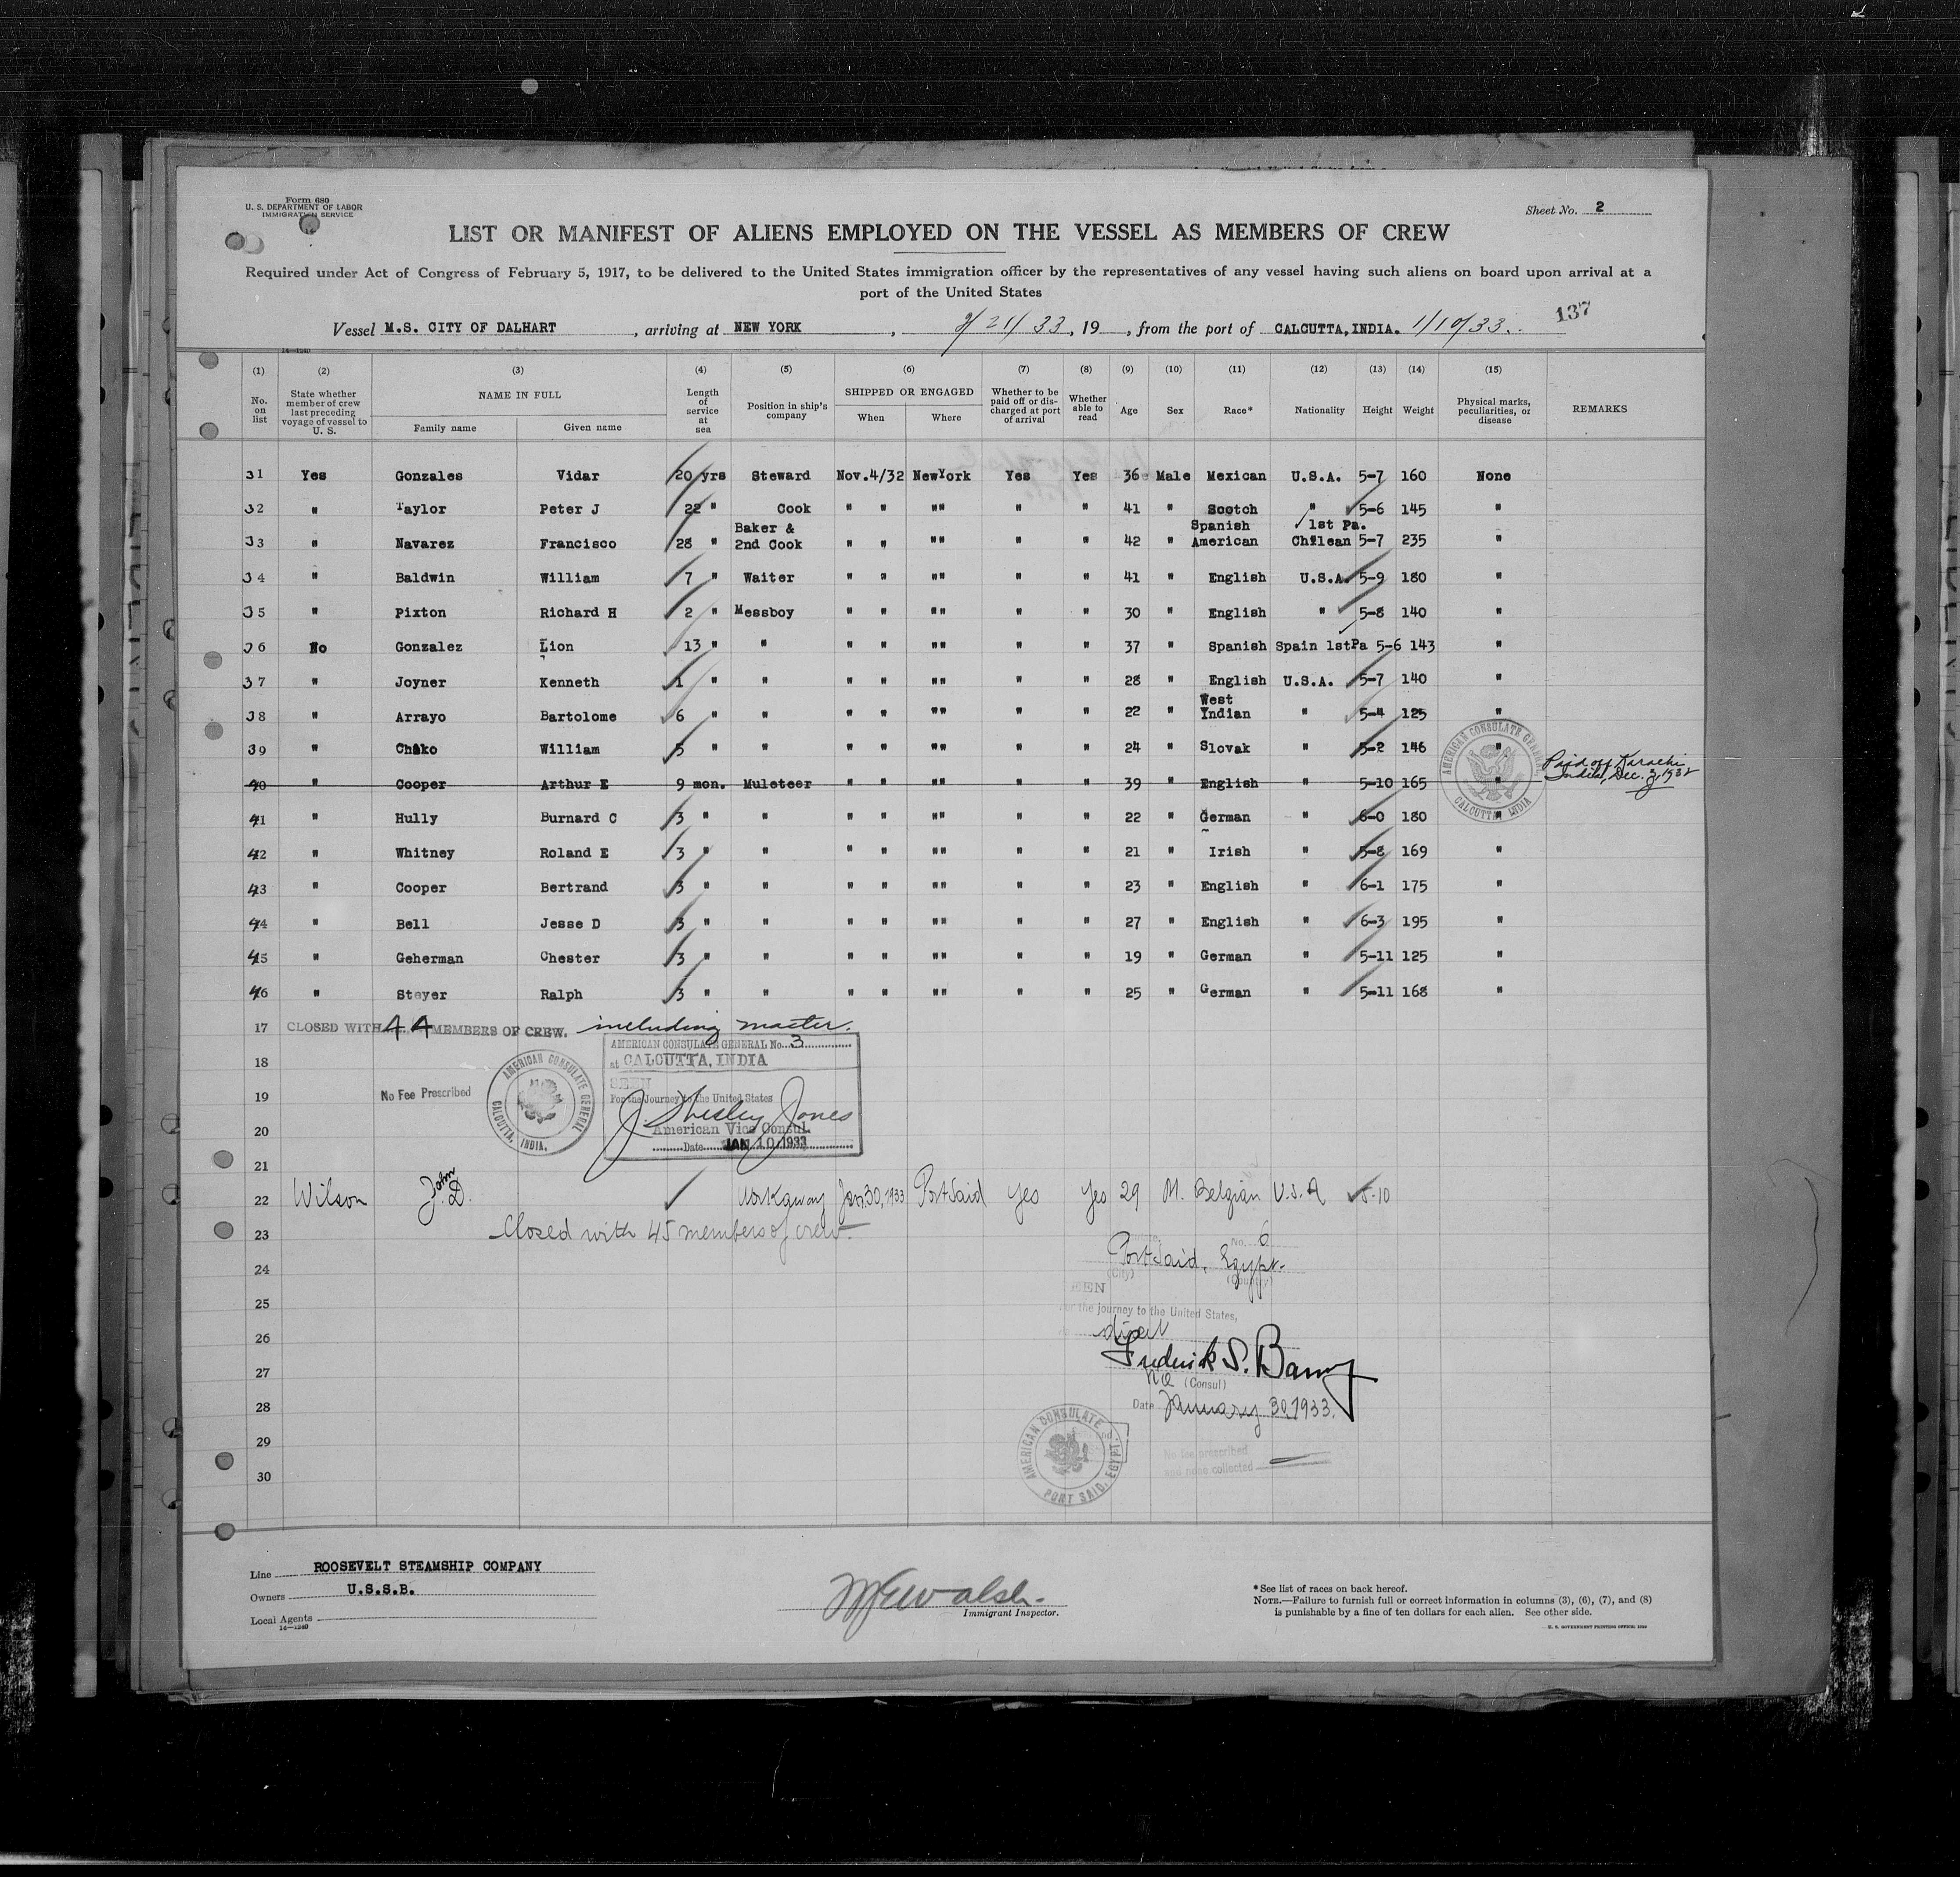 Form 680
U. S. DEPARTMENT OF LABOR
IMMIGRATION SERVICE
Sheet No. 2
LIST OR MANIFEST OF ALIENS EMPLOYED ON THE VESSEL AS MEMBERS OF CREW
Required under Act of Congress of February 5, 1917, to be delivered to the United States immigration officer by the representatives of any vessel having such aliens on board upon arrival at a
port of the United States
137
Vessel M.S. CITY OF DALHART, arriving at NEW YORK, 2/21/33, 19, from the port of CALCUTTA, INDIA. 1/10/33.
14—1240
(1) (2) (3) (4) (5) (6) (7) (8) (9) (10) (11) (12) (13) (14) (15)
No. on list
State whether member of crew last preceding voyage of vessel to U. S.
NAME IN FULL
Family name
Given name
Length of service at sea
Position in ship's company
SHIPPED OR ENGAGED
When
Where
Whether to be paid off or discharged at port of arrival
Whether able to read
Age
Sex
Race*
Nationality
Height
Weight
Physical marks, peculiarities, or disease
REMARKS
31 Yes Gonzales Vidar 20 yrs Steward Nov.4/32 NewYork Yes Yes 36 Male Mexican U.S.A. 5-7 160 None
32 " Taylor Peter J 22 " Cook " " "" " " 41 " Scotch " 5-6 145 "
33 " Navarez Francisco 28 " Baker & 2nd Cook " " "" " " 42 " Spanish American 1st Pa. Chilean 5-7 235 "
34 " Baldwin William 7 " Waiter " " "" " " 41 " English U.S.A. 5-9 180 "
35 " Pixton Richard H 2 " Messboy " " "" " " 30 " English " 5-8 140 "
36 No Gonzalez Lion 13 " " " " "" " " 37 " Spanish Spain 1stPa 5-6 143 "
37 " Joyner Kenneth 1 " " " " "" " " 28 " English U.S.A. 5-7 140 "
38 " Arrayo Bartolome 6 " " " " "" " " 22 " West Indian " 5-4 125 "
39 " Chiko William 5 " " " " "" " " 24 " Slovak " 5-2 146 "
40 " Cooper Arthur E 9 mon. Muleteer " " "" " " 39 " English " 5-10 165 " Paid off Karachi India, Dec. 3, 1932
41 " Hully Burnard C 3 " " " " "" " " 22 " German " 6-0 180 "
42 " Whitney Roland E 3 " " " " "" " " 21 " Irish " 5-8 169 "
43 " Cooper Bertrand 3 " " " " "" " " 23 " English " 6-1 175 "
44 " Bell Jesse D 3 " " " " "" " " 27 " English " 6-3 195 "
45 " Geherman Chester 3 " " " " "" " " 19 " German " 5-11 125 "
46 " Steyer Ralph 3 " " " " "" " " 25 " German " 5-11 168 "
AMERICAN CONSULATE GENERAL
CALCUTTA, INDIA
17 CLOSED WITH 44 MEMBERS OF CREW. including master.
AMERICAN CONSULATE GENERAL No. 3
18 at CALCUTTA, INDIA
SEEN
19 No Fee Prescribed
For the Journey to the United States
AMERICAN CONSULATE GENERAL
CALCUTTA, INDIA.
J. Shesley Jones
20 American Vice Consul.
Date JAN 10 1933
21
22 Wilson John D. Workaway Jan. 30, 1933 Port Said Yes Yes 29 M. Belgian U.S.A 5-10
23 Closed with 45 members of crew.
No. 6
24 Port Said, Egypt.
(City) (Country)
EEN
25 For the journey to the United States,
26
Frederick S. Barny
27
(Consul)
28 Date January 30, 1933.
29 AMERICAN CONSULATE
PORT SAID, EGYPT.
No fee prescribed
and none collected
30
Line ROOSEVELT STEAMSHIP COMPANY
Owners U.S.S.B.
Local Agents
14—1240
Immigrant Inspector.
*See list of races on back hereof.
NOTE.—Failure to furnish full or correct information in columns (3), (6), (7), and (8)
is punishable by a fine of ten dollars for each alien. See other side.
U. S. GOVERNMENT PRINTING OFFICE